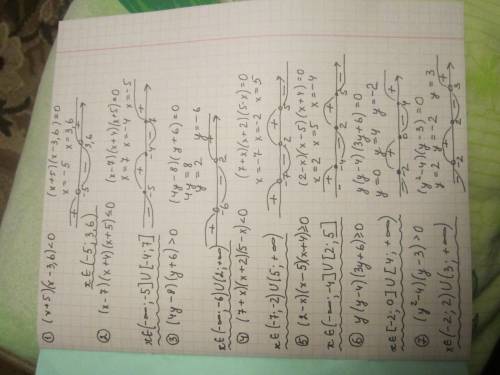 ① (x+5)(x-3,6)<0
(x+5)(x-3,6)=0
x=-5 x=3,6
+ - +
-5 3,6
x∈(-5;3,6)
② (x-7)(x+4)(x+5)≤0
(x-7)(x+4)(x+5)=0
x=7 x=-4 x=-5
- + - +
-5 -4 7
x∈(-∞;-5]∪[-4;7]
③ (4y-8)(y+6)>0
(4y-8)(y+6)=0
4y=8
y=2 y=-6
+ - +
-6 2
x∈(-∞;-6)∪(2;+∞)
④ (7+x)(x+2)(5-x)<0
(7+x)(x+2)(5-x)=0
x=-7 x=-2 x=5
+ - + -
-7 -2 5
x∈(-7;-2)∪(5;+∞)
⑤ (2-x)(x-5)(x+4)≥0
(2-x)(x-5)(x+4)=0
x=2 x=5 x=-4
+ - + -
-4 2 5
x∈(-∞;-4]∪[2;5]
⑥ y(y-4)(3y+6)≥0
y(y-4)(3y+6)=0
y=0 y=4 y=-2
- + - +
-2 0 4
x∈[-2;0]∪[4;+∞)
⑦ (y²-4)(y-3)>0
(y²-4)(y-3)=0
y=2 y=-2 y=3
- + - +
-2 2 3
x∈(-2;2)∪(3;+∞)